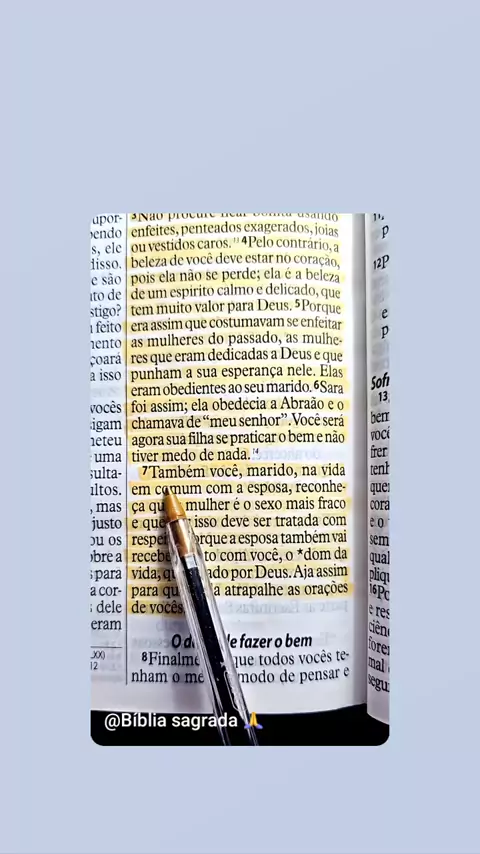 upor-
endo
s, ele
disso.
e são
to de
stigo?
feito
ento
çoará
a isso
vocês
igam
neteu
uma
sulta-
ultos.
, mas
justo
ou os
bre a
para
a cor-
dele
eram
LXX)
12
3Não procure ficar bonita usando
enfeites, penteados exagerados, joias
ou vestidos caros. 4Pelo contrário, a
beleza de você deve estar no coração,
pois ela não se perde; ela é a beleza
de um espírito calmo e delicado, que
tem muito valor para Deus. 5Porque
era assim que costumavam se enfeitar
as mulheres do passado, as mulhe-
res que eram dedicadas a Deus e que
punham a sua esperança nele. Elas
eram obedientes ao seu marido. 6Sara
foi assim; ela obedecia a Abraão e o
chamava de “meu senhor”. Você será
agora sua filha se praticar o bem e não
tiver medo de nada.
7Também você, marido, na vida
em comum com a esposa, reconhe-
ça qu mulher é o sexo mais fraco
e que isso deve ser tratada com
respei orque a esposa também vai
recebe to com você, o *dom da
vida; qu ado por Deus. Aja assim
para qu a atrapalhe as orações
de vocês
O d de fazer o bem
8Finalme que todos vocês te-
nham o me modo de pensar e
11,
p
12P
e
p
Sofr
13,
bem
você
frer
tenh
que
cora
e o
sem
qual
pliqu
16Po
e res
ciên
forem
mal
segu
@Bíblia sagrada 🙏